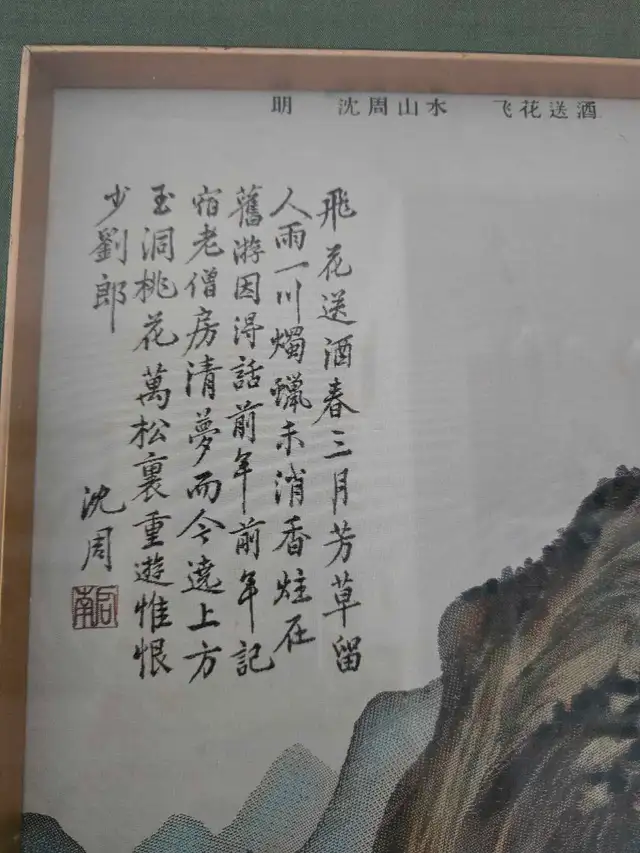 明 沈周山水 飞花送酒
飛花送酒春三月芳草留
人雨一川燭蠟未消香炷在
舊游因得話前年前年記
宿老僧房清夢而今遶上方
玉洞桃花萬松裏重遊惟恨
少劉郎
沈周
启南